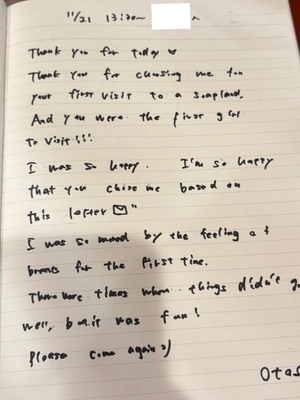 11/21 13:30~ ~
Thank you for today ♡
Thank you for choosing me for
your first visit to a soapland.
And you were the first girl
to visit!!!
I was so happy. I'm so happy
that you chose me based on
this letter ✉"
I was so moved by the feeling of
breasts for the first time.
There were times when things didn't g
well, but it was fun!
Please come again :)
Otas